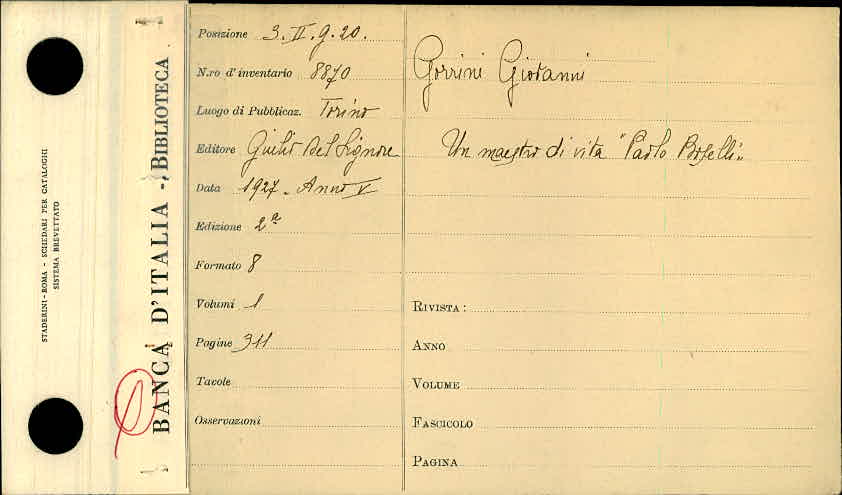 STADERINI-ROMA - SCHEDARI PER CATALOGHI
SISTEMA BREVETTATO
BANCA D'ITALIA - BIBLIOTECA
Posizione 3. II. g. 20.
N.ro d'inventario 8870
Luogo di Pubblicaz. Torino
Editore Giulio Del Signore
Data 1927 - Anno V
Edizione 2ª
Formato 8
Volumi 1
Pagine 311
Tavole
Osservazioni
Gorrini Giovanni
Un maestro di vita "Paolo Boselli"
RIVISTA:
ANNO
VOLUME
FASCICOLO
PAGINA